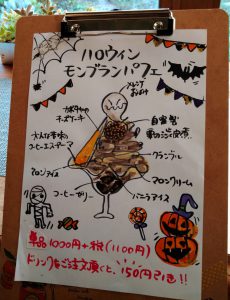 ハロウィン
モンブランパフェ
メレンゲ
おばけ
カボチャの
チーズケーキ
自家製
栗の渋皮煮
大人な苦味の
コーヒーエスプーマ
グラノーラ
マロンアイス
マロンクリーム
コーヒーゼリー
バニラアイス
単品1000円+税(1100円)
ドリンクもご注文頂くと、150円引き!!